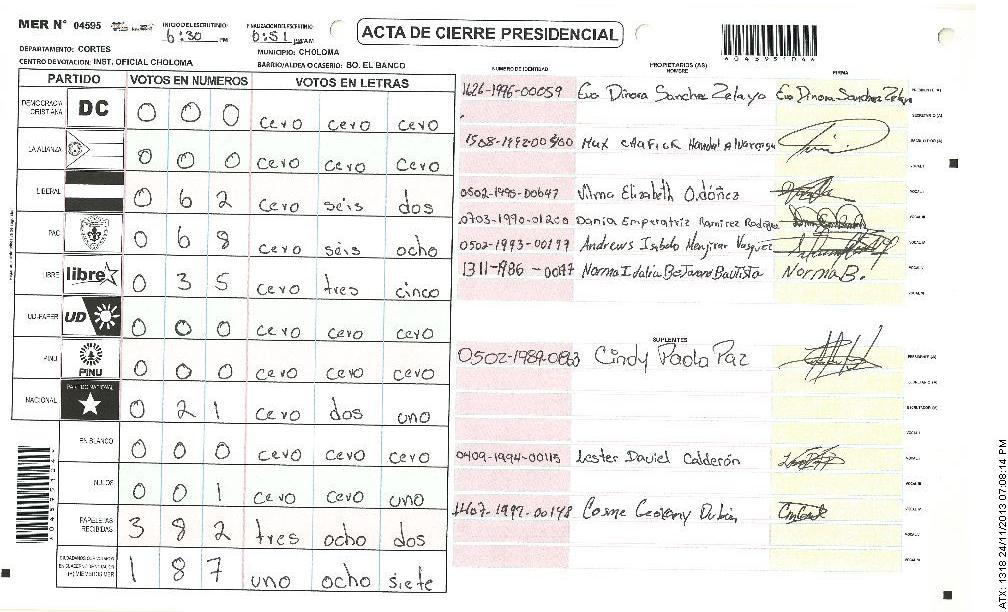 MER N° 04595
INICIO DEL ESCRUTINIO
6:30 PM
FINALIZACION DEL ESCRUTINIO
6:51
ACTA DE CIERRE PRESIDENCIAL
DEPARTAMENTO: CORTES
MUNICIPIO: CHOLOMA
CENTRO DE VOTACION: INST. OFICIAL CHOLOMA
BARRIO/ALDEA O CASERIO: BO. EL BANCO
PARTIDO VOTOS EN NUMEROS VOTOS EN LETRAS
DEMOCRACIA CRISTIANA DC 0 0 0 cero cero cero
LA ALIANZA 0 0 0 cero cero cero
LIBERAL 0 6 2 cero séis dos
PAC 0 6 8 cero séis ocho
LIBRE libre 0 3 5 cero tres cinco
UD-FAPER UD 0 0 0 cero cero cero
PINU PINU 0 0 0 cero cero cero
NACIONAL PARTIDO NACIONAL 0 2 1 cero dos uno
EN BLANCO 0 0 0 cero cero cero
NULOS 0 0 1 cero cero uno
PAPELETAS RECIBIDAS 3 8 2 tres ocho dos
(+) MIEMBROS MER 1 8 7 uno ocho siete
NUMERO DE IDENTIDAD PROPIETARIOS (AS) NOMBRE FIRMA
1626-1996-00059 Eva Dinora Sanchez Zelaya Eva Dinora Sanchez Zelaya PRESIDENTE (A)
SECRETARIO (A)
Max Chafick Handal ESCRUTADOR (A)
VOCAL I
0502-1995-00647 Vilma Elizabeth Ordóñez VOCAL II
0703-1990-01200 Dania Emperatriz Ramirez VOCAL III
0502-1993-00197 Andrews VOCAL IV
1311-1986-0047 Norma Idalia Bautista Norma B. VOCAL V
SUPLENTES
Cindy Paola Paz PRESIDENTE (A)
SECRETARIO (A)
ESCRUTADOR (A)
VOCAL I
0409-1994-00115 Lester Daniel Calderón
1407-1992-00148 Cosme
04595104
ATX: 1318 24/11/2013 07:08:14 PM